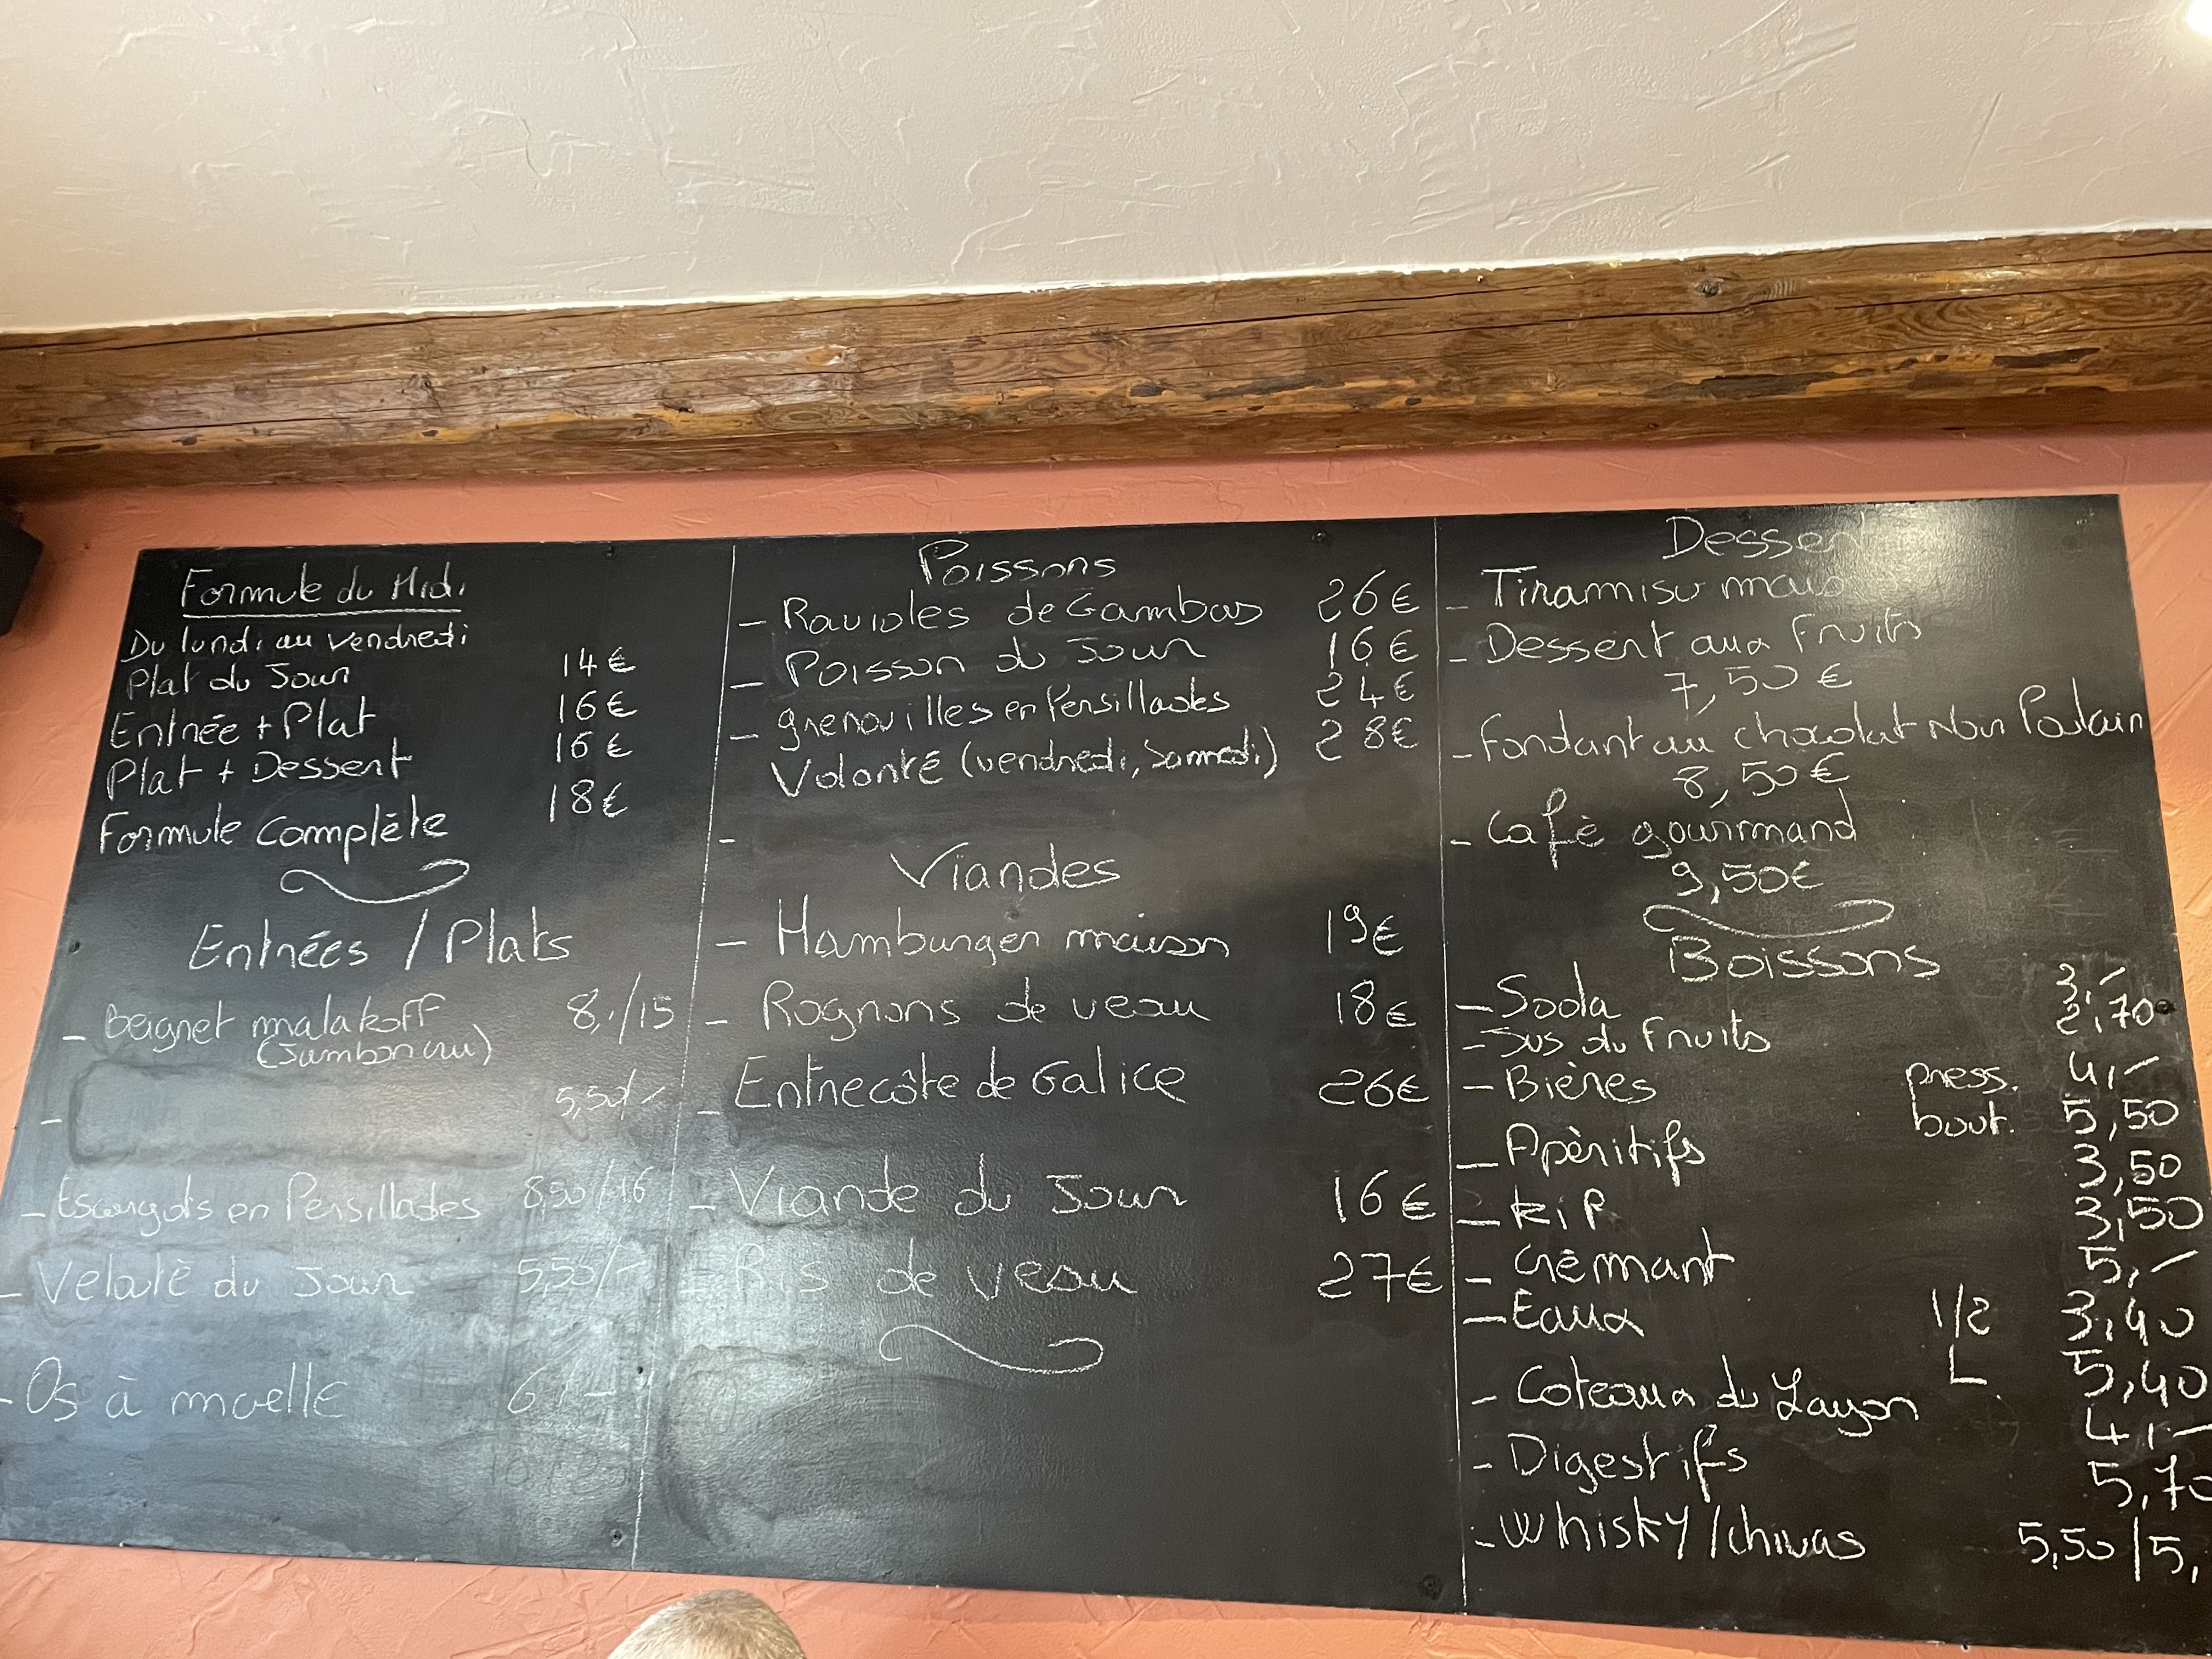 Formule du Midi
Du lundi au vendredi
Plat du Jour 14€
Entrée + Plat 16€
Plat + Dessert 16€
Formule complète 18€
Entrées / Plats
- Beignet malakoff 8,-/15
(Jambon cru)
- 5,50/-
- Escargots en Persillades 8,50/16
- Velouté du Jour 5,50/-
- Os à moelle 6,-
Poissons
- Ravioles de Gambas 26€
- Poisson du Jour 16€
- grenouilles en Persillades 24€
Volonté (vendredi, Samedi) 28€
-
Viandes
- Hamburger maison 19€
- Rognons de veau 18€
- Entrecôte de Galice 26€
- Viande du Jour 16€
- Ris de veau 27€
Dessert
- Tiramisu
- Dessert aux Fruits
7,50€
- Fondant au chocolat Noir
8,50€
- Café gourmand
9,50€
Boissons
- Soda 3,-
- Jus du Fruits 2,70
- Bières press. 4,-
bout. 5,50
- Apèritifs 3,50
- kiR 3,50
- Crémant 5,-
- Eaux 1/2 3,40
L 5,40
- Coteaux du Layon 4,-
- Digestifs 5,70
- Whisky/chivas 5,50/5,